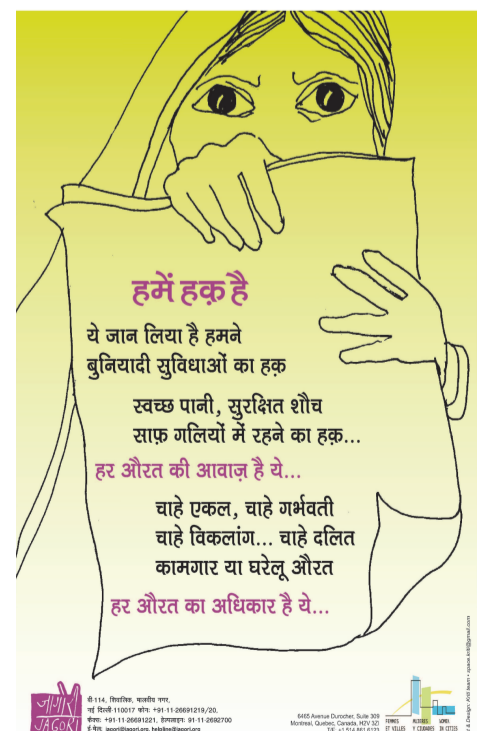 हमें हक़ है
ये जान लिया है हमने
बुनियादी सुविधाओं का हक़
स्वच्छ पानी, सुरक्षित शौच
साफ़ गलियों में रहने का हक़...
हर औरत की आवाज़ है ये...
चाहे एकल, चाहे गर्भवती
चाहे विकलांग... चाहे दलित
कामगार या घरेलू औरत
हर औरत का अधिकार है ये...
जागोरी
JAGORI
बी-114, शिवालिक, मालवीय नगर,
नई दिल्ली-110017 फोन: +91-11-26691219/20,
फैक्स: +91-11-26691221, हेल्पलाइन: 91-11-2692700
ई-मेल: jagori@jagori.org, helpline@jagori.org
6465 Avenue Durocher, Suite 309
Montreal, Quebec, Canada, H2V 3Z1
T/F. +1 514 861 6123
FEMMES ET VILLES
MUJERES Y CIUDADES
WOMEN IN CITIES
& Design: Kriti team • space.kriti@gmail.com